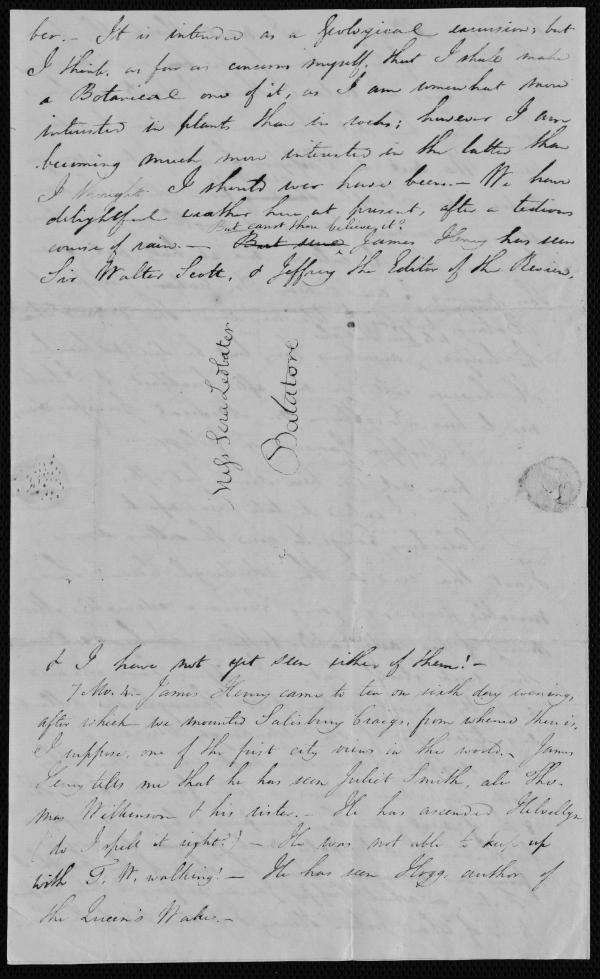 ber. — It is intended as a Geological excursion; but
I think, as far as concerns myself, that I shall make
a Botanical one of it, as I am somewhat more
interested in plants than in rocks; however I am
becoming much more interested in the latter than
I thought I should ever have been. — We have
delightful weather here at present, after a tedious
But canst thou believe it?
course of rain. — But since James Henry has seen
Sir Walter Scott, & Jeffrey the Editor of the Review,
Miss Leadbeater
Balatore
& I have not yet seen either of them! —
7 Mo. 4. — James Henry came to tea on sixth day evening,
after which we mounted Salisbury Craigs, from whence there is,
I suppose, one of the first city views in the world. — James
Henry tells me that he has seen Juliet Smith, also Tho-
mas Wilkinson & his sister. — He has ascended Helvellyn
(do I spell it right?) — He was not able to keep up
with T. W. walking! — He has seen Hogg, author of
the Queen's Wake. —